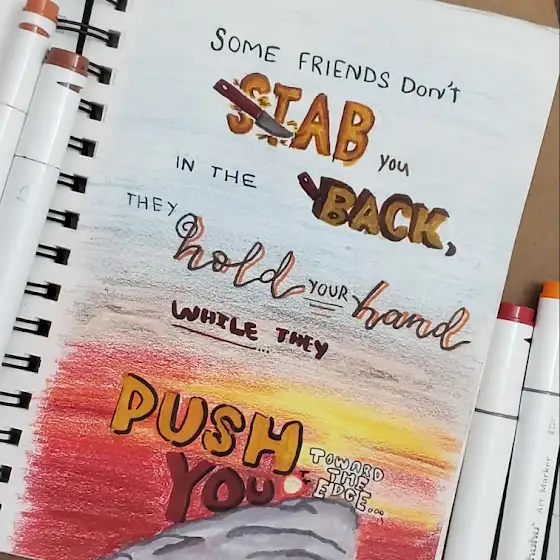 SOME FRIENDS DON'T
STAB you
IN THE BACK,
THEY
hold YOUR hand
WHILE THEY
PUSH
YOU TOWARD
THE
EDGE...
Art Marker